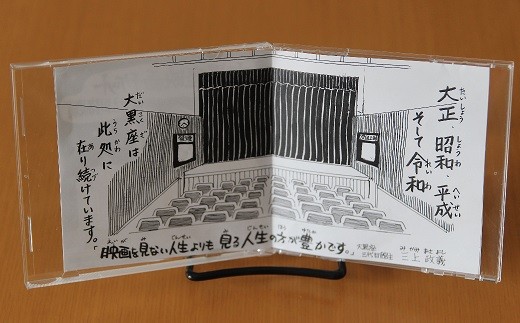 大正、昭和、平成
そして令和
大黒座は
此処に
在り続けています。
「映画を見ない人生よりも見る人生の方が豊かです。」
大黒座
三上政義